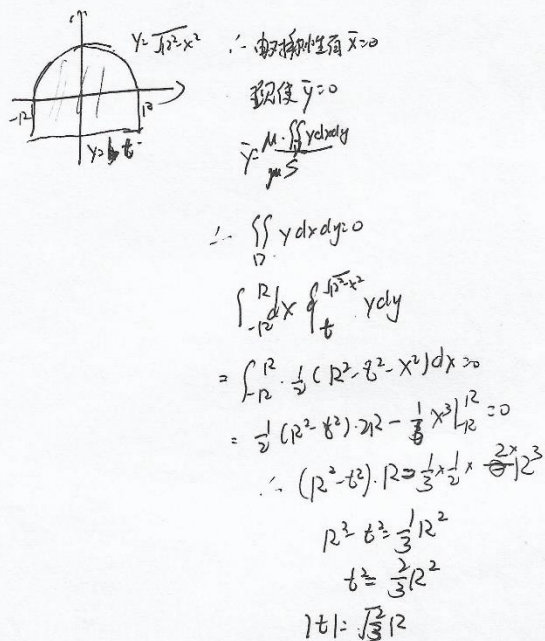 y=√R²-x²
-R
R
y=t
∴ 由对称性有 x̄=0
现使 ȳ=0
ȳ=μ·∬ydxdy/μS
∴ ∬_D ydxdy=0
∫_{-R}^{R}dx∫_{t}^{√R²-x²}ydy
=∫_{-R}^{R}·½(R²-t²-x²)dx=0
=½(R²-t²)·2R-⅓x³|_{-R}^{R}=0
∴ (R²-t²)·R=⅓×½×2×R³
R²-t²=⅓R²
t²=⅔R²
|t|=√⅔R